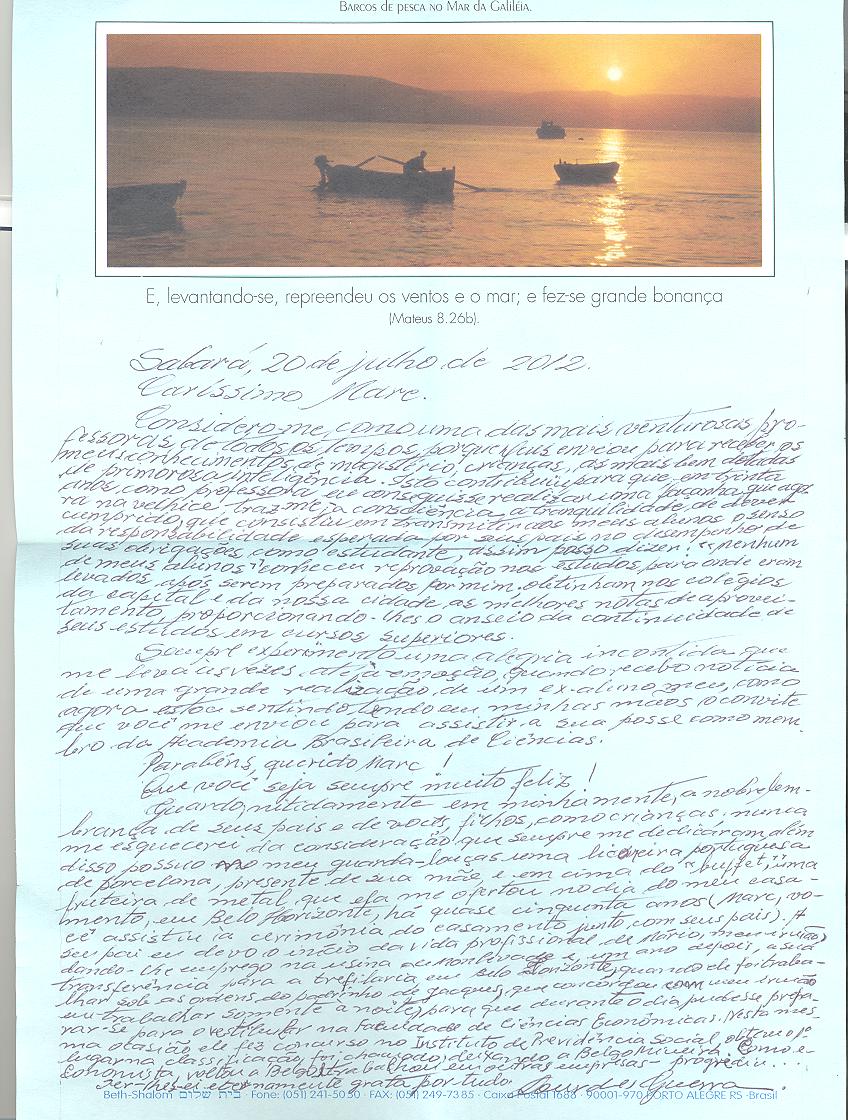 Barcos de pesca no Mar da Galiléia.
E, levantando-se, repreendeu os ventos e o mar; e fez-se grande bonança
(Mateus 8.26b).
Sabará, 20 de julho de 2012.
Caríssimo Marc.
Considero-me, como uma das mais venturosas pro-
fessoras de todos os tempos, porque Deus enviou para receber os
meus conhecimentos de magistério, crianças, as mais bem dotadas
de primorosa inteligência. Isto contribuiu para que, em trinta
anos, como professora, eu conseguisse realizar uma façanha, que ago-
ra na velhice traz-me à consciência, a tranquilidade, de dever
cumprido, que consistiu em transmitir aos meus alunos o senso
da responsabilidade esperada por seus pais no desempenho de
suas obrigações, como estudante, assim posso dizer: "nenhum
de meus alunos" conheceu reprovação nos estudos, para onde eram
levados, após serem preparados por mim, obtinham nos colégios
da capital e da nossa cidade, as melhores notas de aprovei-
tamento, proporcionando-lhes o anseio da continuidade de
seus estudos em cursos superiores.
Sempre experimento uma alegria incontida, que
me leva às vezes, até à emoção, quando recebo notícia
de uma grande realização, de um ex-aluno meu, como
agora estou sentindo, tendo em minhas mãos o convite
que você me enviou para assistir a sua posse como mem-
bro da Academia Brasileira de Ciências.
Parabéns, querido Marc!
Que você seja sempre muito feliz!
Guardo, nitidamente em minha mente, a nobre lem-
brança de seus pais e de vocês, filhos, como crianças, nunca
me esquecerei da consideração que sempre me dedicaram, além
disso possuo no meu guarda-louças uma licoreira portuguesa
de porcelana, presente de sua mãe, e em cima do "buffet", uma
fruteira de metal, que ela me ofertou no dia do meu casa-
mento, em Belo Horizonte, há quase cinquenta anos (Marc, vo-
cê assistiu à cerimônia do casamento junto, com seus pais). A
seu pai eu devo o início da vida profissional de Mário, meu irmão,
dando-lhe emprego na usina de Monlevade e, um ano depois, a sua
transferência para a trefilaria em Belo Horizonte, quando ele foi traba-
lhar sob as ordens do padrinho de Jacques, que concordou com meu irmão
em trabalhar somente à noite, para que durante o dia pudesse prepa-
rar-se para o vestibular na Faculdade de Ciências Econômicas. Nesta mes-
ma ocasião ele fez concurso no Instituto de Previdência Social, obteve o 1º
lugar na classificação, foi chamado, deixando a Belgo Mineira. Como e-
conomista, voltou a Belgo trabalhou em outras empresas - progrediu...
Ser-lhes-ei eternamente grata por tudo. Lourdes Guerra.
Beth-Shalom בית שלום · Fone: (051) 241-5050 · FAX: (051) 249-7385 · Caixa Postal 1688 · 90001-970 PORTO ALEGRE RS -Brasil